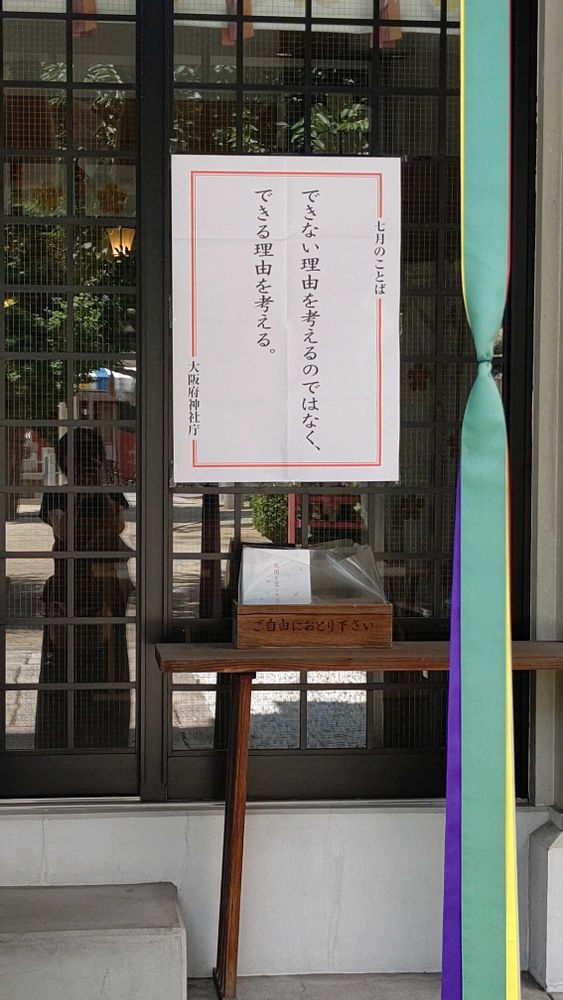 七月のことば
できない理由を考えるのではなく、
できる理由を考える。
大阪府神社庁
ご自由におとり下さい